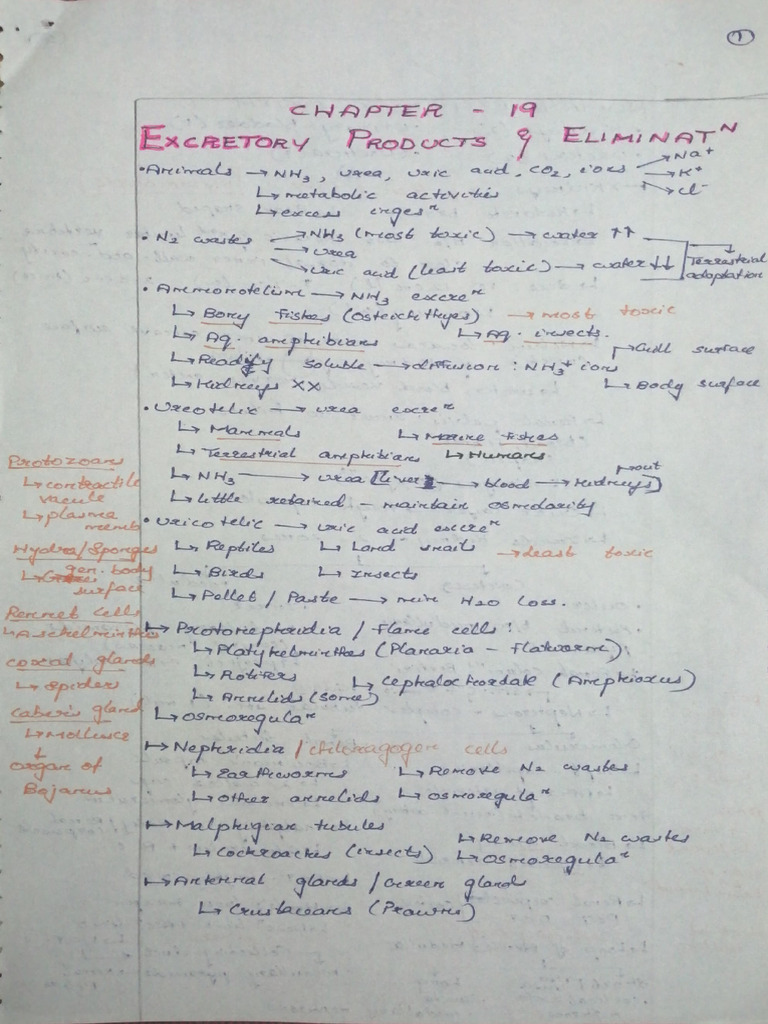 1
CHAPTER - 19
EXCRETORY PRODUCTS & ELIMINATN
• Animals → NH3, urea, uric acid, CO2, ions → Na+
→ K+
→ Cl-
↳ metabolic activities
↳ excess ingesn
• N2 wastes → NH3 (most toxic) → water ↑↑
→ urea
→ uric acid (least toxic) → water ↓↓
Terrestrial
adaptation
• Ammonotelism → NH3 excren
↳ Bony Fishes (Osteichthyes) → most toxic
↳ Aq. amphibians ↳ Aq. insects.
↳ Readily soluble → diffusion : NH3+ ions
Gill surface
↳ Body surface
↳ Kidneys XX
• Ureotelic → urea excren
↳ Mammals ↳ Marine fishes
↳ Terrestrial amphibians ↳ Humans
↳ NH3 → urea [liver] → blood → kidneys]
out
↳ little retained - maintain osmolarity
• Uricotelic → uric acid excren
↳ Reptiles ↳ Land snails → least toxic
↳ Birds ↳ Insects
↳ Pellet / Paste → min H2O loss.
↳ Protonephridia / Flame cells :
↳ Platyhelminthes (Planaria - flatworm)
↳ Rotifers ↳ Cephalochordate (Amphioxus)
↳ Annelids (Some)
↳ Osmoregulan
↳ Nephridia / chloragogen cells
↳ Earthworms ↳ Remove N2 wastes
↳ other annelids ↳ osmoregulan
↳ Malphigian tubules
↳ Cockroaches (insects) ↳ Remove N2 wastes
↳ Osmoregulan
↳ Antennal glands / Green glands
↳ Crustaceans (Prawns)
Protozoans
↳ contractile
vacule
↳ plasma
memb
Hydra/Sponges
↳ gen. body
surface
Rennet Cells
↳ Aschelminthes
coxal glands
↳ spider
Keber's gland
↳ Mollusc
↓
organ of
Bojanus